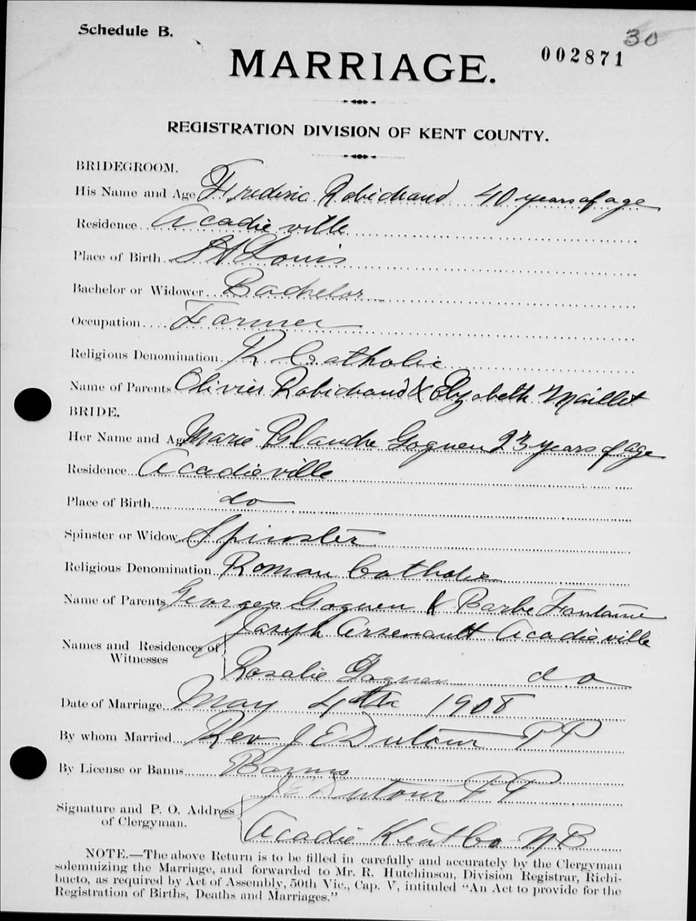 30
Schedule B.
002871
MARRIAGE.
REGISTRATION DIVISION OF KENT COUNTY.
BRIDEGROOM.
His Name and Age Frederic Robichaud 40 years of age
Residence Acadieville
Place of Birth St Louis
Bachelor or Widower Bachelor
Occupation Farmer
Religious Denomination R Catholic
Name of Parents Olivier Robichaud & Elyzabeth Maillet
BRIDE.
Her Name and Age Marie Blanche Goguen 23 years of age
Residence Acadieville
Place of Birth do
Spinster or Widow Spinster
Religious Denomination Roman Catholic
Name of Parents Georges Goguen & Barbe Fontaine
Joseph Arsenault Acadieville
Names and Residences of Witnesses
Rosalie Goguen do
Date of Marriage May 4th 1908
By whom Married Rev J E Dutour PP
By License or Banns Banns
J Dutour PP
Signature and P. O. Address of Clergyman.
Acadie Kent Co NB
NOTE.—The above Return is to be filled in carefully and accurately by the Clergyman
solemnizing the Marriage, and forwarded to Mr. R. Hutchinson, Division Registrar, Richi-
bucto, as required by Act of Assembly, 50th Vic., Cap. V, intituled "An Act to provide for the
Registration of Births, Deaths and Marriages."